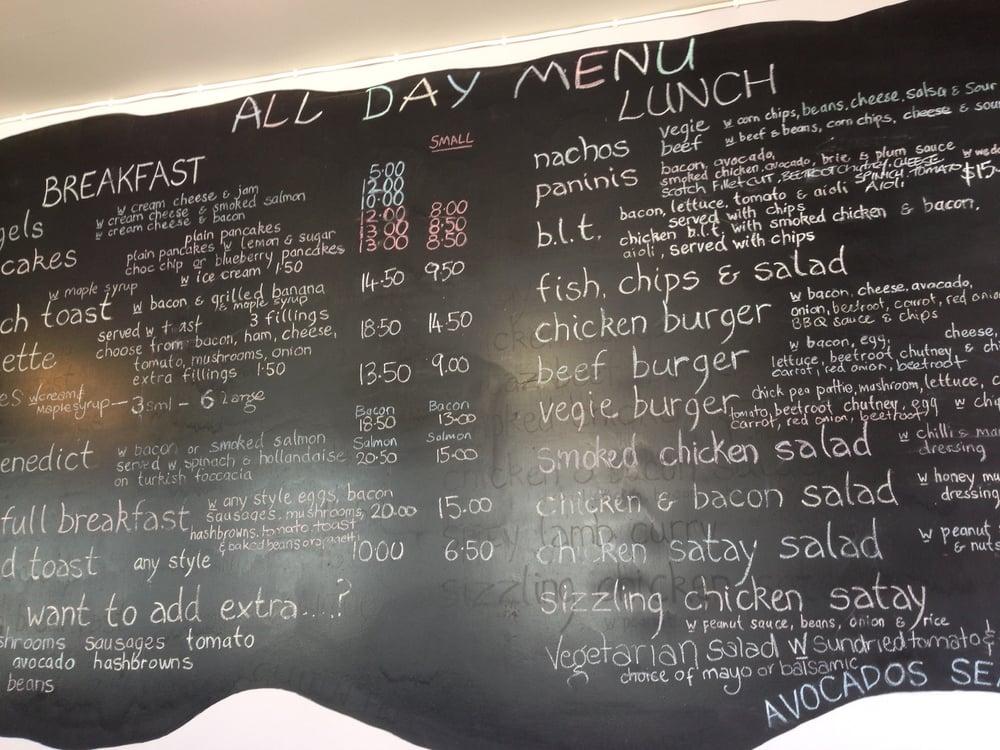 ALL DAY MENU
BREAKFAST
SMALL
gels w cream cheese & jam 5:00
w cream cheese & smoked salmon 12:00
w cream cheese & bacon 10:00
cakes plain pancakes 12:00 8:00
plain pancakes w lemon & sugar 13:00 8:50
choc chip or blueberry pancakes 13:00 8:50
w maple syrup w ice cream 1:50
ch toast w bacon & grilled banana 14:50 9:50
& maple syrup
ette served w toast 3 fillings 18:50 14:50
choose from: bacon, ham, cheese,
tomato, mushrooms, onion
extra fillings 1:50
es w cream & 13:50 9.00
Maple syrup - 3 sml - 6 Large
Bacon Bacon
18:50 13:00
enedict w bacon or smoked salmon Salmon Salmon
served w spinach & hollandaise 20:50 15:00
on turkish foccacia
full breakfast w any style eggs, bacon
sausages, mushrooms, 20.00 15.00
hashbrowns, tomato, toast
& baked beans or spagnetti
d toast any style 10:00 6:50
want to add extra....?
shrooms sausages tomato
avocado hashbrowns
beans
LUNCH
nachos vegie w corn chips, beans, cheese, salsa & Sour
beef w beef & beans, corn chips, cheese & sour
paninis bacon, avocado,
smoked chicken, avocado, brie, & plum sauce
SCOTCH FILLET CUT, BEETROOT chutney, CHEESE
SPINICH TOMATO AIOLI $15
b.l.t. bacon, lettuce, tomato & aioli
served with chips
chicken b.l.t. with smoked chicken & bacon,
aioli, served with chips
fish, chips & salad
chicken burger w bacon, cheese, avocado,
onion, beetroot, carrot, red onion
BBQ sauce & chips
beef burger w bacon, egg, cheese,
lettuce, beetroot chutney & chi
carrot, red onion, beetroot
vegie burger chick pea pattie, mushroom, lettuce, c
tomato, beetroot chutney, egg w chip
carrot, red onion, beetroot
smoked chicken salad w chilli & ma
dressing
chicken & bacon salad w honey mu
dressing
chicken satay salad w peanut
& nuts
sizzling chicken satay
w peanut sauce, beans, onion & rice
Vegetarian Salad w Sundried tomato &
choice of mayo or balsamic
AVOCADOS SEA